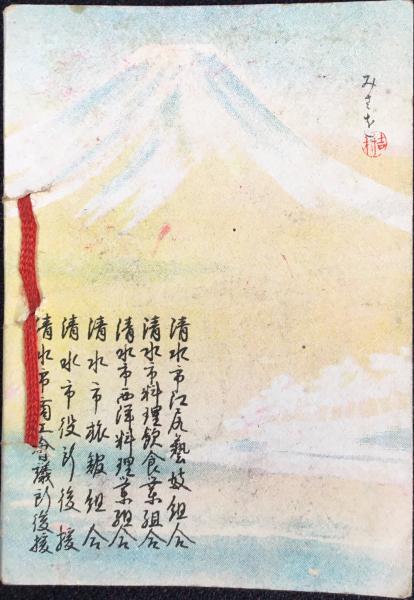 みさを
吉村
清水市江尻藝妓組合
清水市料理飲食業組合
清水市西洋料理業組合
清水市旅館組合
清水市役所後援
清水市商工會議所後援